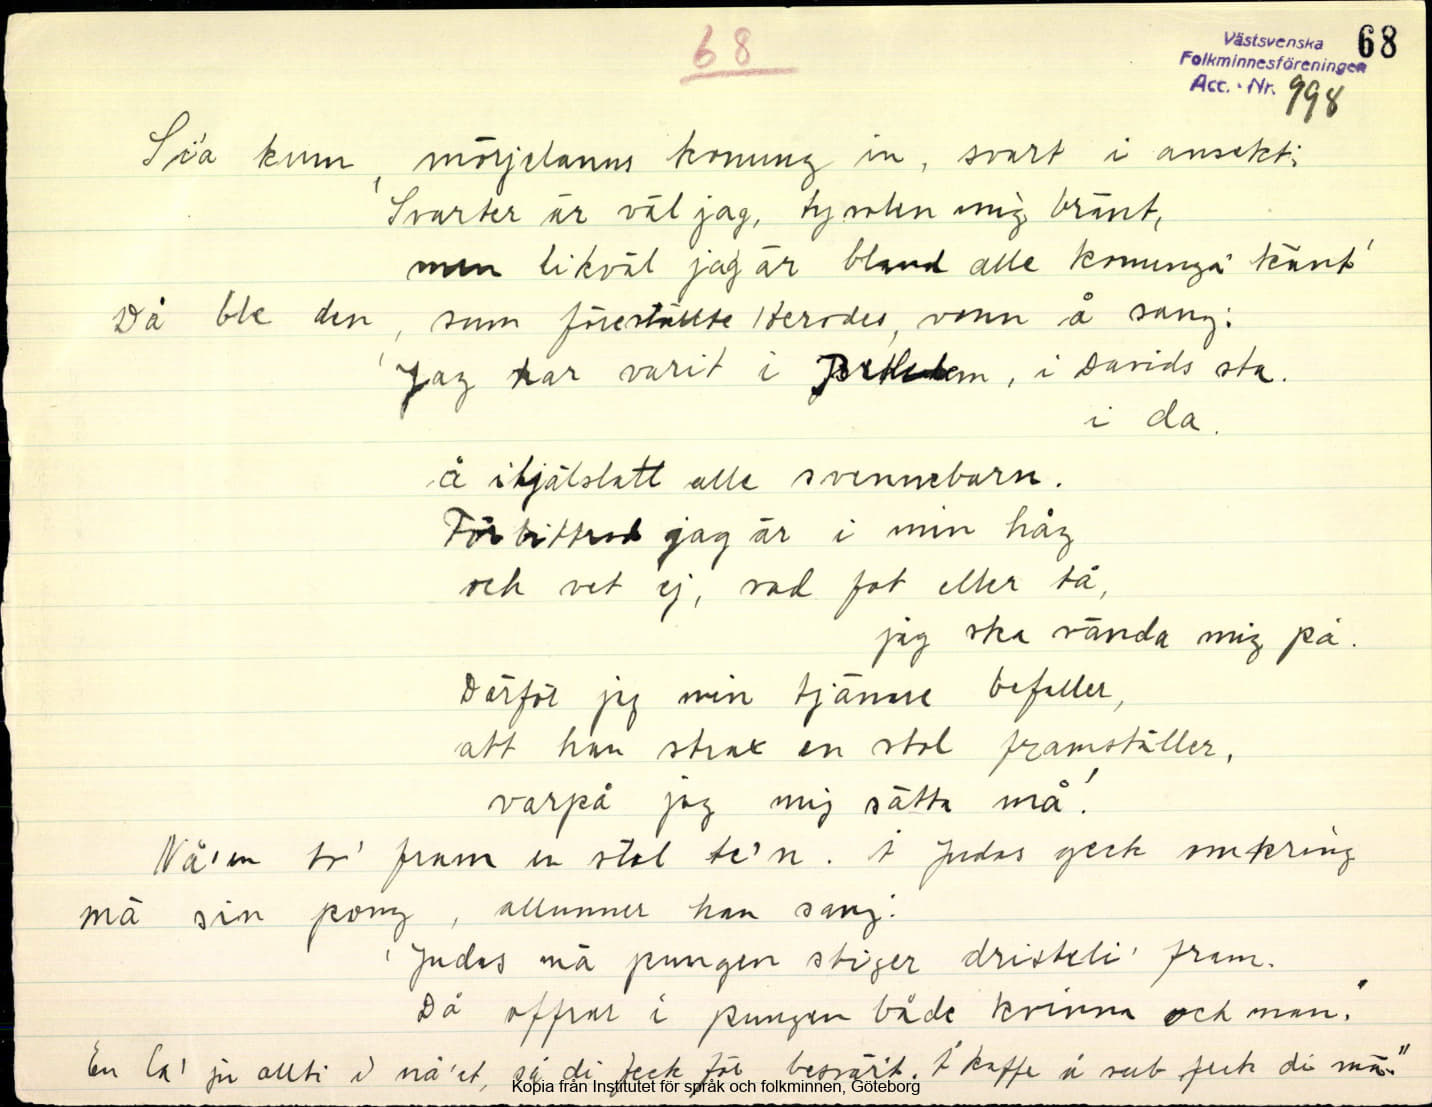 68
68
Västsvenska
Folkminnesföreningen
Acc.-Nr. 998
Si'a kum, mörjelanns konung in, svart i ansekt:
'Svarter är väl jag, ty solen mig bränt,
men likväl jag är bland alle konunga känt'
Då ble den, sum föreställte Herodes, vonn å sang:
'Jag har varit i Betlehem, i Davids sta.
i da.
å ihjälslatt alle svennebarn.
Förbittrad jag är i min håg
och vet ej, vad fot eller tå,
jag ska vända mig på.
Därför jag min tjänare befaller,
att han strax en stol framställer,
varpå jag mig sätta må'.
Nå'en to' fram en stol te'n. Å Judas geck omkring
mä sin pong, allunner han sang:
'Judas mä pungen stiger dristeli' fram.
Då offrar i pungen både kvinna och man.'
En la' ju allti i nå'et, så di feck för besväret. Å kaffe å sub feck di mä."
Kopia från Institutet för språk och folkminnen, Göteborg